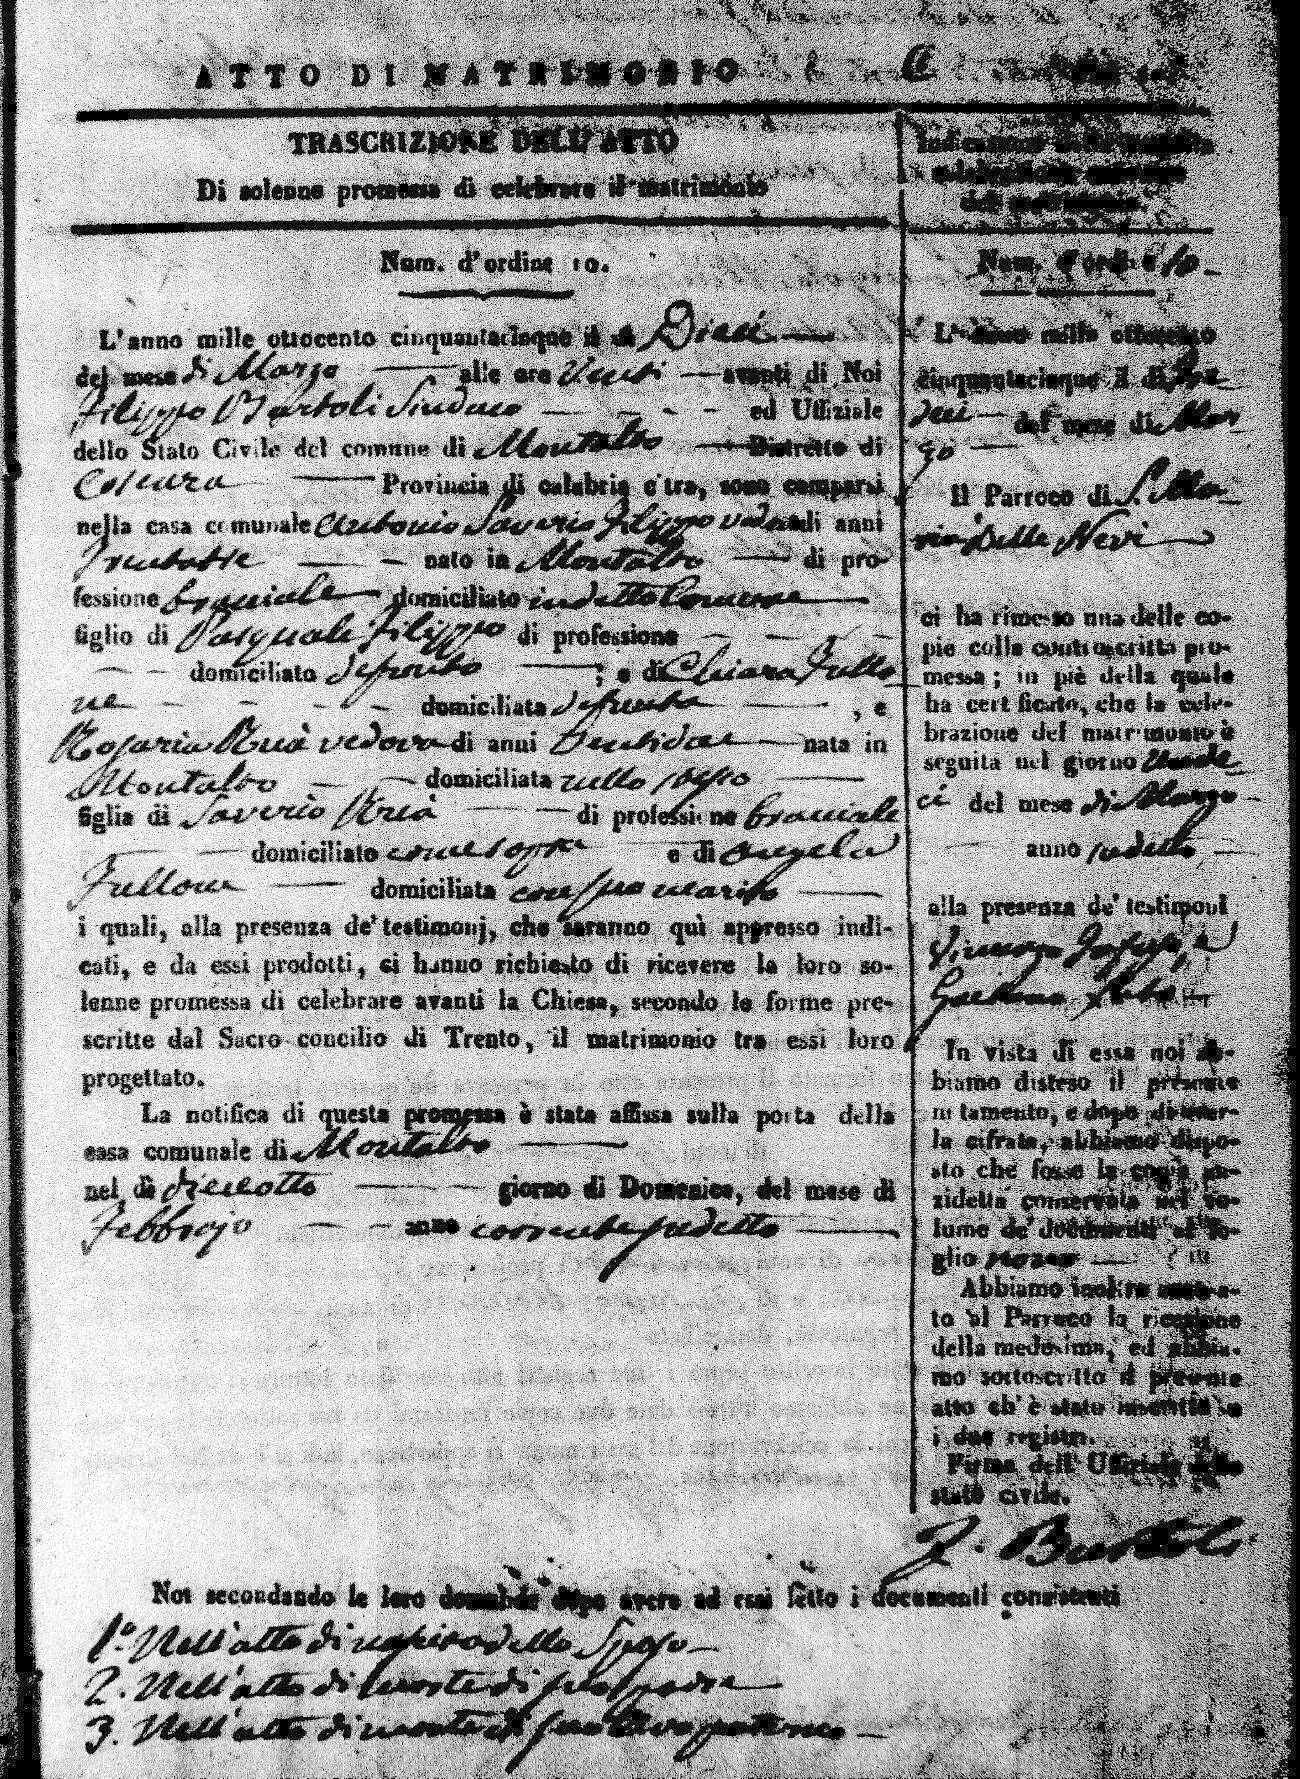 ATTO DI MATRIMONIO
TRASCRIZIONE DELL' ATTO
Di solenne promessa di celebrare il matrimonio
Num. d'ordine 10.
L'anno mille ottocento cinquantacinque il dì Dieci
del mese di Marzo alle ore Venti avanti di Noi
Filippo Bartoli Sindaco ed Uffiziale
dello Stato Civile del comune di Montalto Distretto di
Cosenza Provincia di calabria c'tra, sono comparsi
nella casa comunale Antonio Saverio Filippo vedovo di anni
Trentatre nato in Montalto di pro-
fessione bracciale domiciliato in detto Comune
figlio di Pasquale Filippo di professione
domiciliato defunto ; e di Chiara Fullo
ne domiciliata defunta , e
Rosaria vedova di anni Trentidue nata in
Montalto domiciliata nello stesso
figlia di Saverio di professione bracciale
domiciliato come sopra e di Angela
Fullone domiciliata con suo marito
i quali, alla presenza de' testimonj, che saranno quì appresso indi-
cati, e da essi prodotti, ci hanno richiesto di ricevere la loro so-
lenne promessa di celebrare avanti la Chiesa, secondo le forme pre-
scritte dal Sacro concilio di Trento, il matrimonio tra essi loro
progettato.
La notifica di questa promessa è stata affissa sulla porta della
casa comunale di Montalto
nel dì dieciotto giorno di Domenica, del mese di
Febbrajo anno corrente sudetto
Num. d'ordine 10
L'anno mille ottocento
cinquantacinque il dì Un
dici del mese di Mar
zo
Il Parroco di S. Ma
ria delle Nevi
ci ha rimesso una delle co-
pie colla controscritta pro-
messa ; in piè della quale
ha cert ficato, che la cele-
brazione del matrimonio è
seguita nel giorno Unde
ci del mese di Marzo
anno sudetto
alla presenza de' testimoni
Gaetano
In vista di essa noi ab-
biamo disteso il presente
notamento, e dopo di aver-
la cifrata, abbiamo dispo-
sto che fosse la copia an-
zidetta conservata nel vo-
lume de' documenti al fo-
glio nono
Abbiamo inoltre accusa-
to al Parroco la ricezione
della medesima, ed abbia-
mo sottoscritto il presente
atto ch' è stato inscritto su
i due registri.
Firma dell' Uffiziale dello
stato civile.
F. Bartoli
Noi secondando le loro domande dopo avere ad essi letto i documenti consistenti
1.º Nell'atto di nascita dello Sposo
2. Nell'atto di morte di suo padre
3. Nell'atto di morte di suo avo paterno